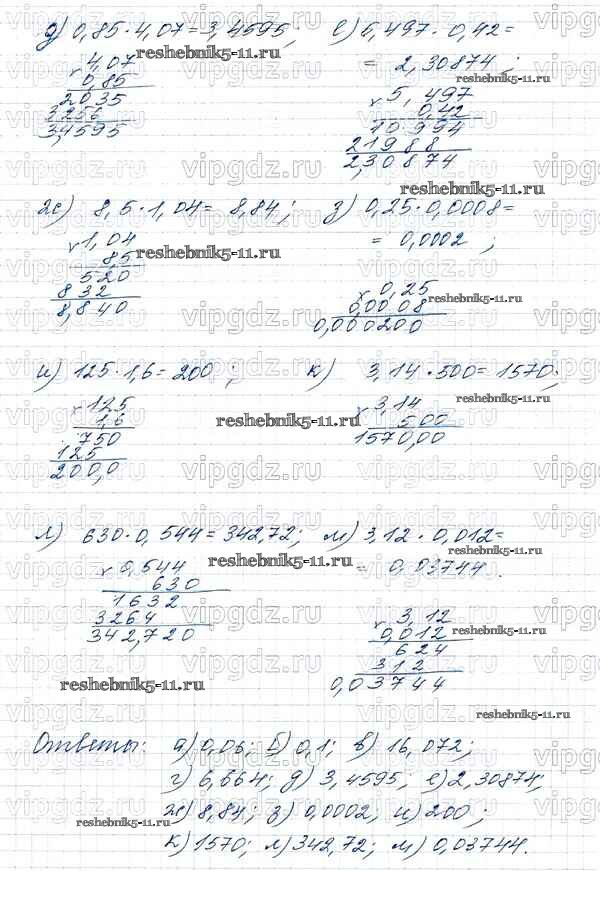 д) 0,85 · 4,07 = 3,4595;
× 4,07
0,85
2035
3256
3,4595
е) 5,497 · 0,42 =
= 2,30874;
× 5,497
0,42
10994
21988
2,30874
ж) 8,5 · 1,04 = 8,84;
× 1,04
8,5
520
832
8,840
з) 0,25 · 0,0008 =
= 0,0002;
× 0,25
0,0008
0,000200
и) 125 · 1,6 = 200;
× 125
1,6
750
125
200,0
к) 3,14 · 500 = 1570;
× 3,14
500
1570,00
л) 630 · 0,544 = 342,72;
× 0,544
630
1632
3264
342,720
м) 3,12 · 0,012 =
= 0,03744.
× 3,12
0,012
624
312
0,03744
Ответы: а) 0,06; б) 0,1; в) 16,072;
г) 6,664; д) 3,4595; е) 2,30874;
ж) 8,84; з) 0,0002, и) 200;
к) 1570; л) 342,72; м) 0,03744.
reshebnik5-11.ru
vipgdz.ru